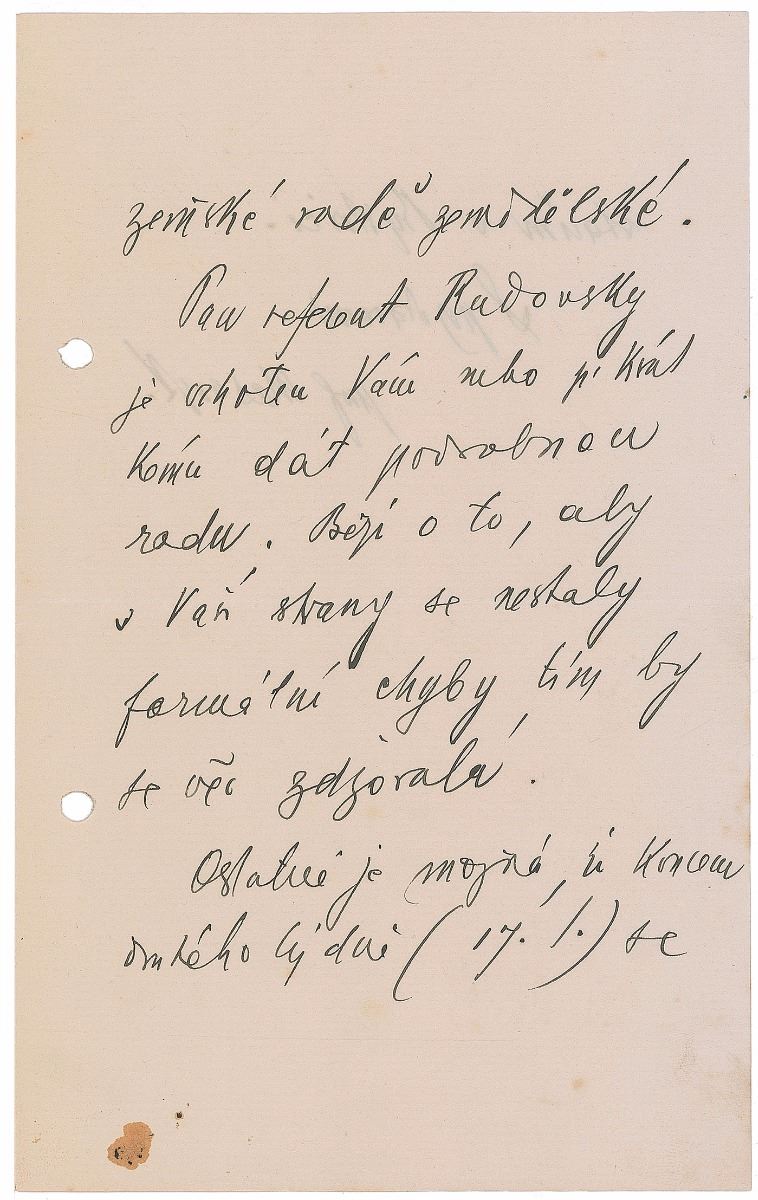 zemské radě zemědělské.
Pan referent Radovsky
je ochoten Vám nebo p. Král
komu dát podrobnou
radu. Běží o to, aby
s Vaší strany se nestaly
formální chyby tím by
se věc zdržovala.
Ostatně je možná, že koncem
druhého týdne (17. I.) se